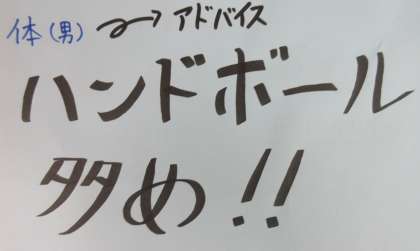 体(男) → アドバイス
ハンドボール
多め!!